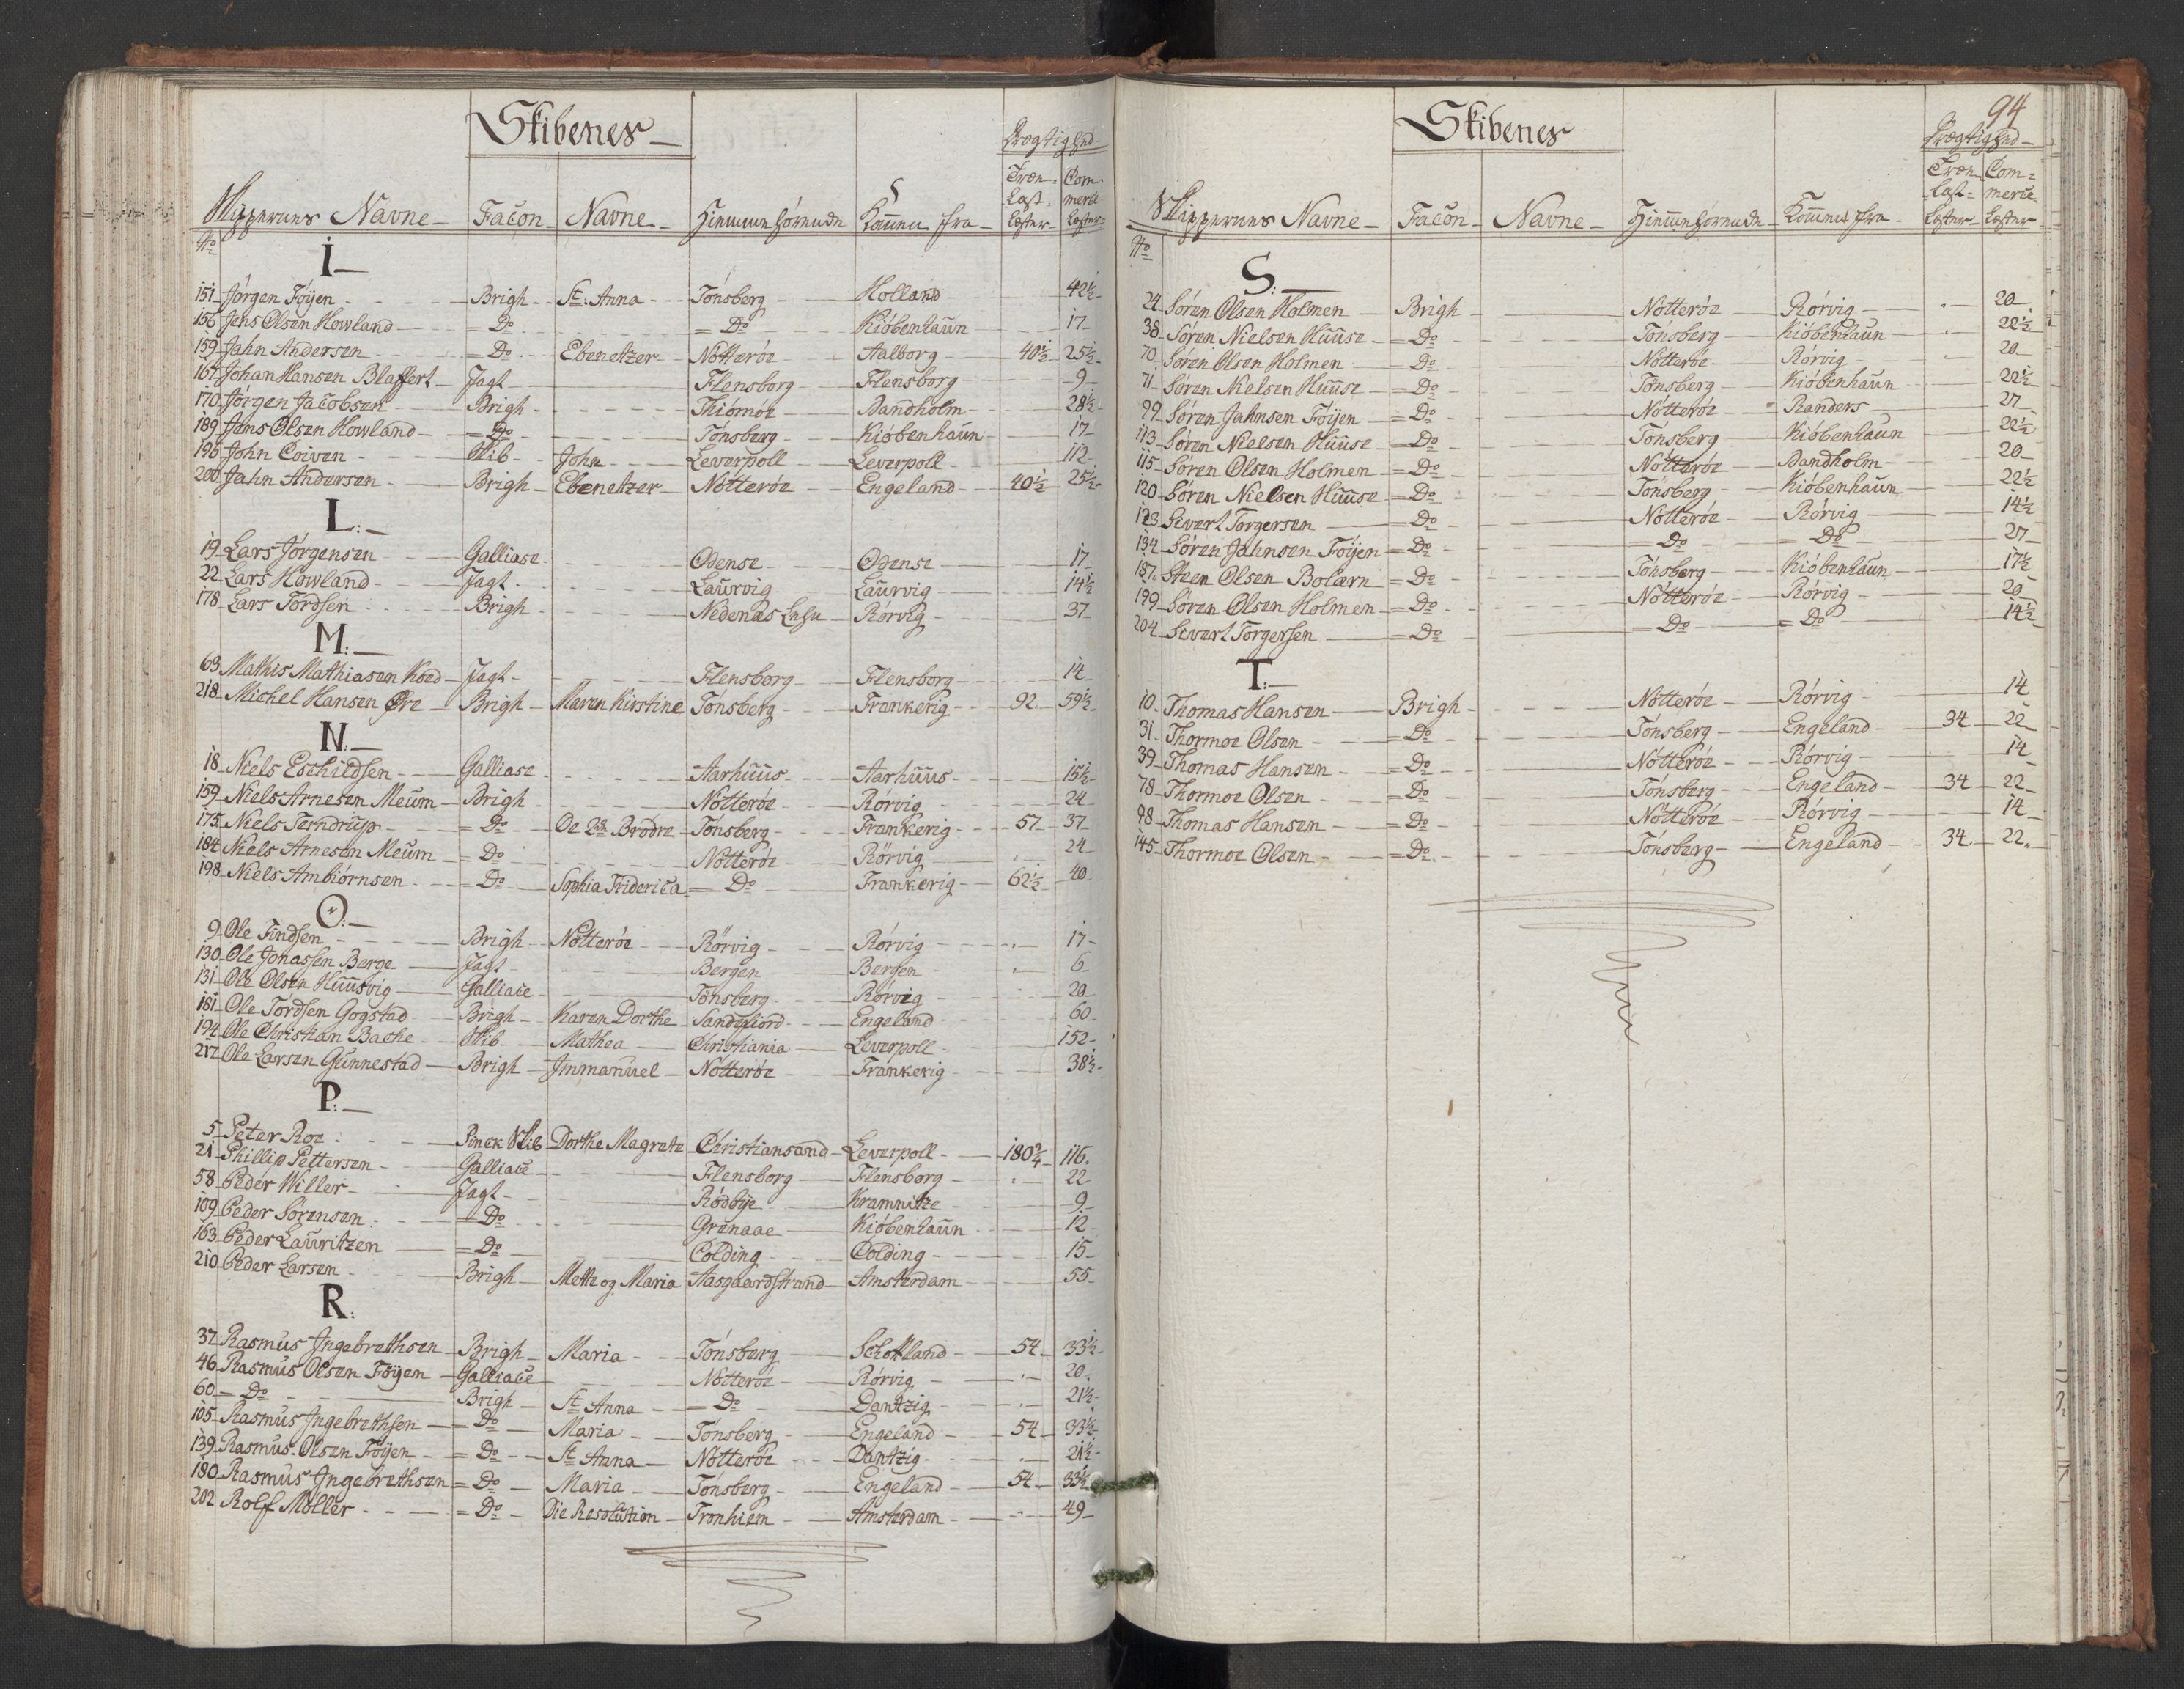 Skibenes
Drægtighed
Skippernes Navne Facon Navne Hiemmehørende Kommer fra Træ Last Læster Commerce Læster
No
I
151 Jørgen Føÿen Brigh St: Anna Tønsberg Holland 42½
156 Jens Olsen Howland Do Do Kiøbenhaun 17
159 Jahn Andersen Do Ebenetzer Nøtterøe Aalborg 40½ 25½
167 Johan Hansen Blaffert Jagt Flensborg Flensborg 9
170 Jørgen Jacobsen Brigh Thiömöe Bandholm 28½
189 Jens Olsen Howland Do Tønsberg Kiøbenhaun 17
196 John Coiven Skib John Leverpoll Leverpoll 112
200 Jahn Andersen Brigh Ebenetzer Nøtterøe Engeland 40½ 25½
L:
19 Lars Jørgensen Galliase Odense Odense 17
22 Lars Howland Jagt Laurvig Laurvig 14½
178 Lars Tordsen Brigh Nedenæs Lehn Rørvig 37
M:
63 Mathis Mathiasen Koed Jagt Flensborg Flensborg 14
218 Michel Hansen Øre Brigh Maren Kirstine Tønsberg Frankerig 92 59½
N:
18 Niels Eschildsen Galliase Aarhuus Aarhuus 15½
159 Niels Arnesen Meum Brigh Nøtterøe Rørvig 24
175 Niels Terndrup Do De 2de Brødre Tønsberg Frankerig 57 37
184 Niels Arnesen Meum Do Nøtterøe Rörvig 24
198 Niels Ambiørnsen Do Sophia Friderica Do Frankerig 62½ 40
O:
9 Ole Findsen Brigh Nøtterøe Rörvig Rørvig 17
130 Ole Jonassen Berge Jagt Bergen Bergen 6
131 Ole Olsen Huusvig Galliace Tønsberg Rørvig 20
181 Ole Tordsen Gogstad Brigh Karen Dorthe Sandefiord Engeland 60
194 Ole Christian Bache Skib Mathea Christiania Leverpoll 152
217 Ole Larsen Gunnestad Brigh Jmmanuel Nøtterøe Frankerig 38½
P:
5 Peter Roe Pinck Skib Dorthe Magrete Christiansand Leverpoll 180¾ 116
21 Phillip Pettersen Galliace Flensborg Flensborg 22
58 Peder Willer Jagt Rødbÿe Kramnitze 9
109 Peder Sørensen Do Grenaae Kiøbenhaun 12
163 Peder Lauritzen Do Colding Colding 15
210 Peder Larsen Brigh Mette og Maria Aasgaardstrand Amsterdam 55
R:
37 Rasmus Jngebrethsen Brigh Maria Tønsberg Schottland 54 33½
46 Rasmus Olsen Føÿen Galliace Nøtterøe Rørvig 20
60 Do Brigh St Anna Do Dantzig 21½
105 Rasmus Jngebrethsen Do Maria Tønsberg Engeland 54 33½
139 Rasmus Olsen Føÿen Do St Anna Nøtterøe Dantzig 21½
180 Rasmus Jngebrethsen Do Maria Tønsberg Engeland 54 33½
202 Rolff Møller Do Die Resolution Tronhiem Amsterdam 49
94
Skibenes
Drægtighed
Skippernes Navne Facon Navne Hiemmehørende Kommer fra Træ Last Læster Commerce Læster
No
S:
24 Søren Olsen Holmen Brigh Nøtterøe Rørvig 20
38 Søren Nielsen Huuse Do Tønsberg Kiøbenhaun 22½
70 Søren Olsen Holmen Do Nøtterøe Rørvig 20
71 Søren Nielsen Huuse Do Tønsberg Kiøbenhaun 22½
92 Søren Jahnsen Føÿen Do Nøtterøe Randers 27
113 Søren Nielsen Huuse Do Tønsberg Kiøbenhaun 22½
115 Søren Olsen Holmen Do Nøtterøe Bandholm 20
120 Søren Nielsen Huuse Do Tønsberg Kiøbenhaun 22½
123 Sivert Torgersen Do Nøtterøe Rørvig 14½
134 Søren Jahnsen Føÿen Do Do Do 27
187 Steen Olsen Bolærn Do Tønsberg Kiøbenhaun 17½
199 Søren Olsen Holmen Do Nøtterøe Rørvig 20
204 Sivert Torgersen Do Do Do 14½
T:
10 Thomas Hansen Brigh Nøtterøe Rørvig 14
31 Thormoe Olsen Do Tønsberg Engeland 34 22
39 Thomas Hansen Do Nøtterøe Rørvig 14
78 Thormoe Olsen Do Tønsberg Engeland 34 22
98 Thomas Hansen Do Nøtterøe Rørvig 14
145 Thormoe Olsen Do Tønsberg Engeland 34 22